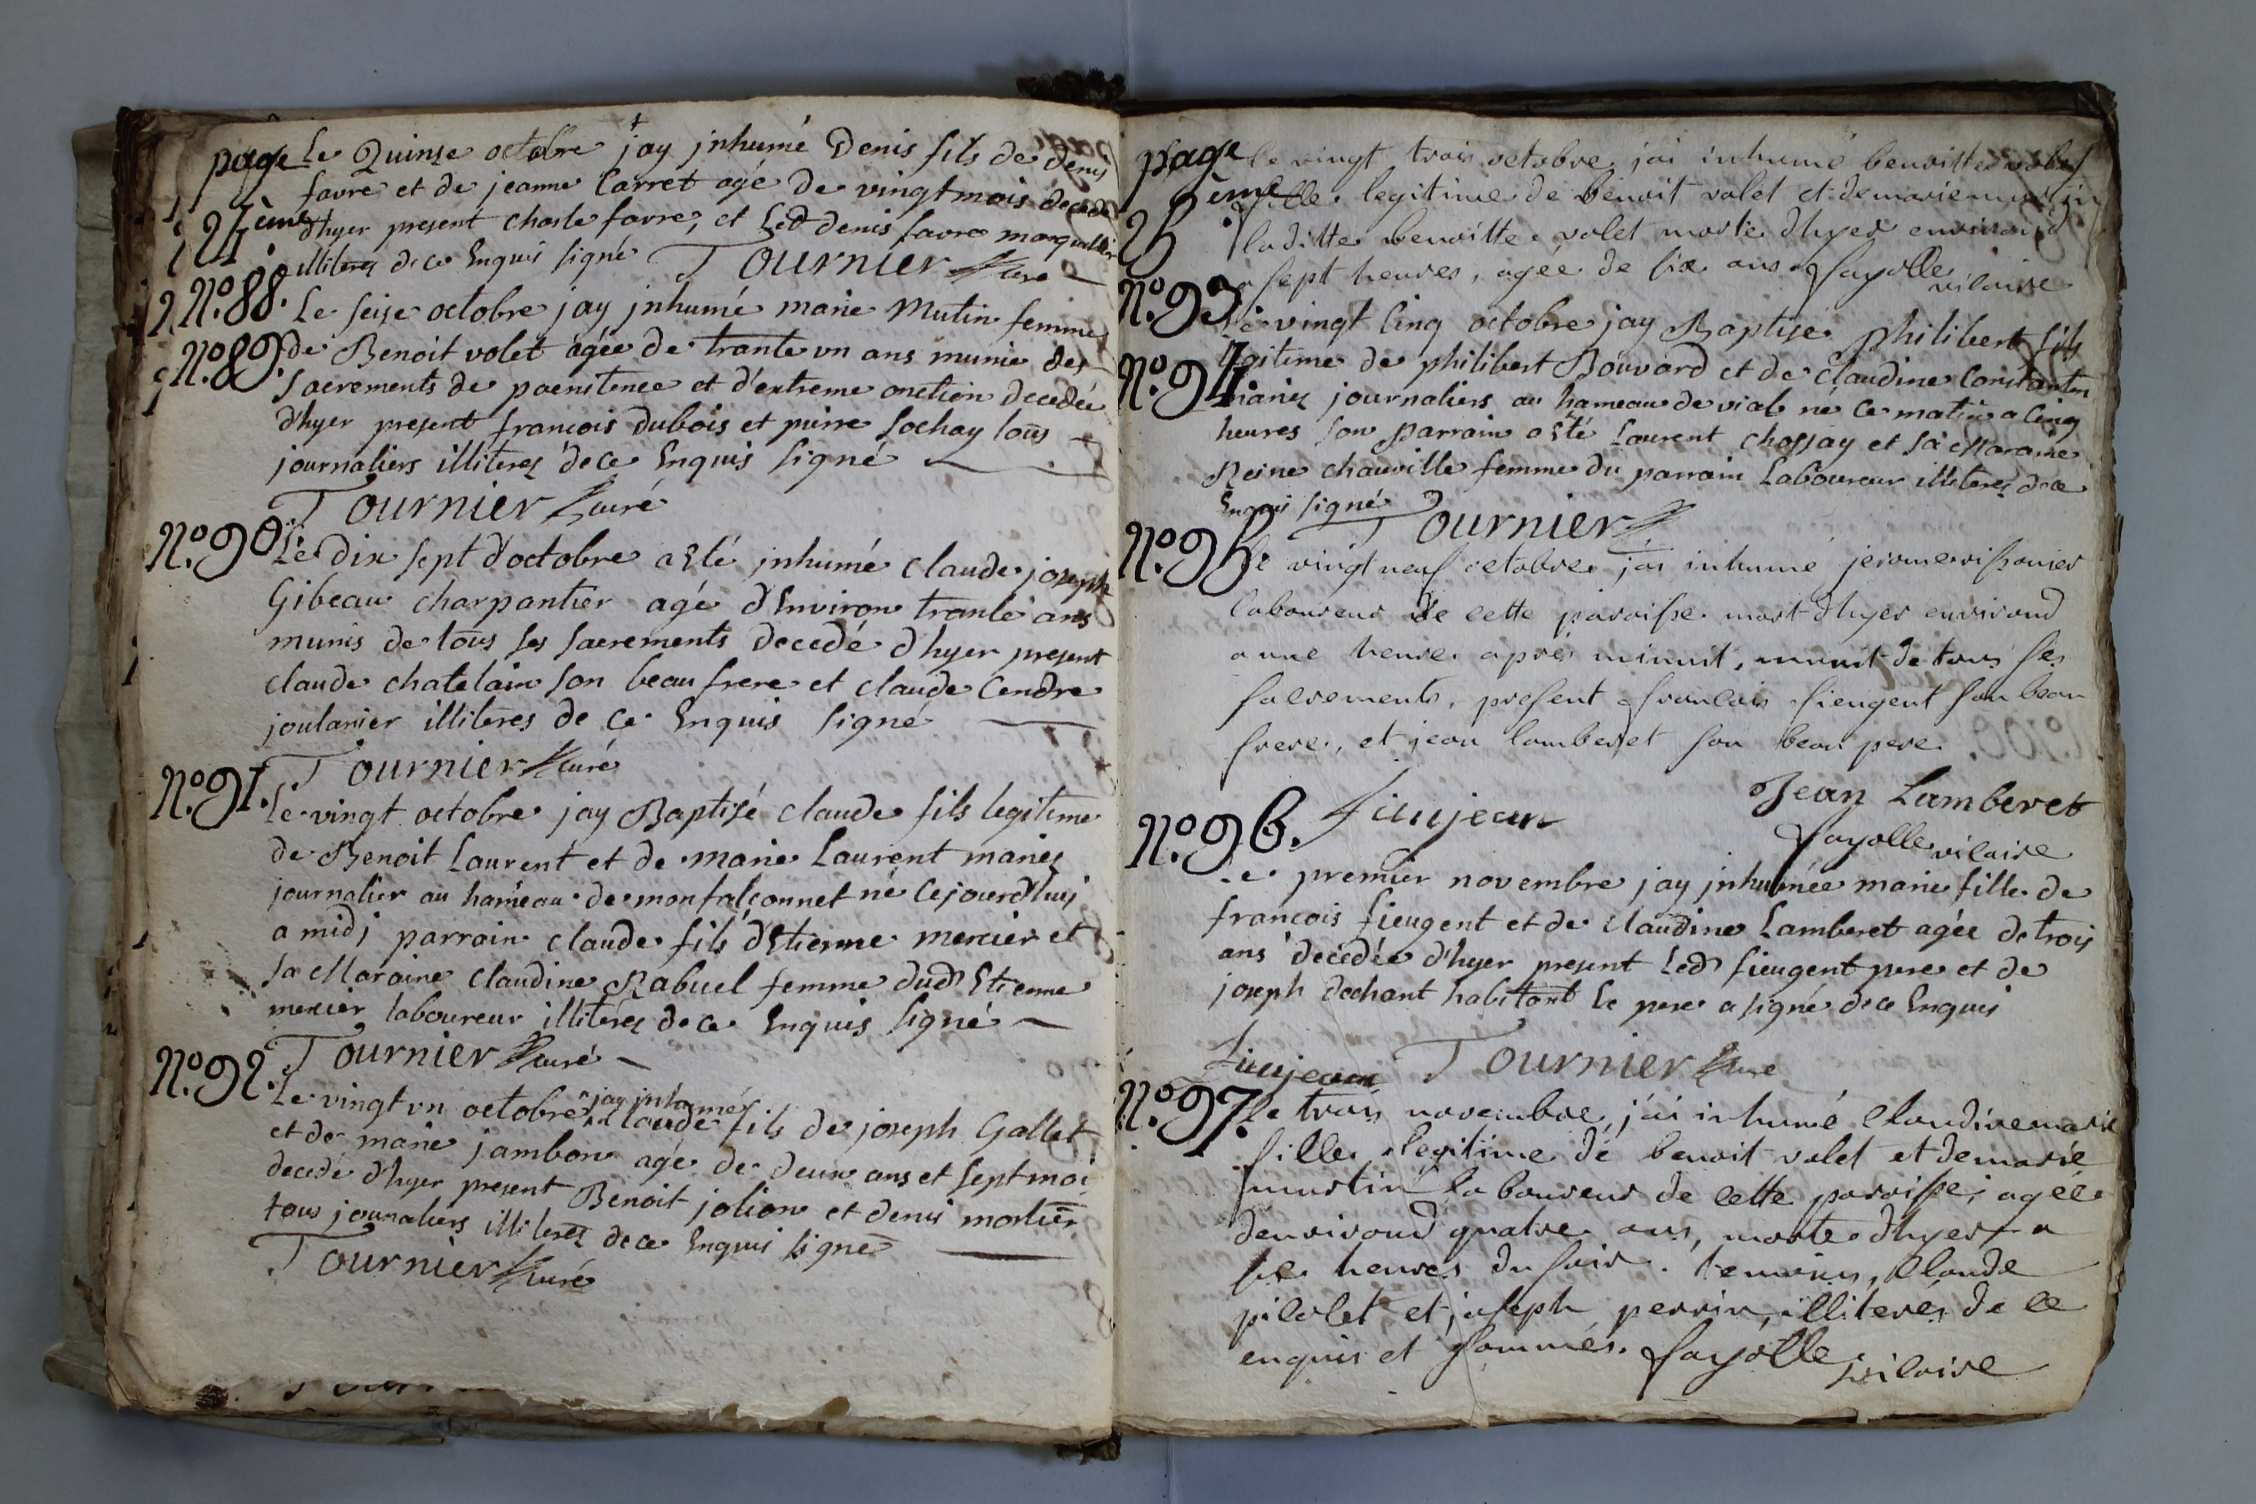 page
24ème
Le Quinse octobre jay jnhumé Denis fils de denis
favre et de jeanne Carret agé de vingt mois decedé
d'hyer present charle favre, et Led denis favre marguillier
illiterez de ce Enquis signé Tournier Curé
N.º 88.
Le seise octobre jay jnhumé marie Mutin femme
N.º 89.
de Benoit volet agée de trante un ans munie des
sacrements de poenitence et d'extreme onction decedée
d'hyer present francois dubois et pierre sochay tous
journaliers illiterez de ce Enquis signé
Tournier Curé
N.º 90.
Le dix sept d'octobre a Eté jnhumé claude joseph
Gibeau charpantier agé d'Environ trante ans
munis de tous ses sacrements decedé d'hyer present
claude chatelain son beau frere et claude Cendre
joulanier illiteres de ce Enquis signé
Tournier Curé
N.º 91.
Le vingt octobre jay Baptisé claude fils legitime
de Benoit Laurent et de marie Laurent mariez
journalier au haméau de monfalconnet né Cejourd'huj
a midj parrain claude fils d'Etienne mercier et
sa Maraine claudine Rabuel femme dud Etienne
mercier laboureur illitérez de ce Enquis signé
Tournier Curé
N.º 92.
Le vingt vn octobre jay jnhumé claude fils de joseph Gallet
et de marie jambon agé de deux ans et sept moi
decedé d'hyer present Benoit jolion et denis mortier
tous journaliers illiterez de ce Enquis signé
Tournier Curé
page
25 ème
le vingt trois octobre jai inhumé benoitte volet
fille legitime de benoit volet et de marie
la ditte benoitte volet morte d'hyer environd
a sept heures, agée de six ans. fayolle vicaire
N.º 93
Le vingt Cinq octobre jay Baptisé philibert fils
N.º 94
legitime de philibert Bouvard et de Claudine Constantin
mariez journaliers au hameau de vial né ce matin a Cinq
heures son parrain a Eté Laurent chossay et sa Maraine
Reine chauville femme du parrain Laboureur illiterez de ce
Enquis signé Tournier
N.º 95
Le vingt neuf octobre jai inhumé jerome
laboureur de cette paroisse mort d'hyer environd
a une heure après minuit, munit de tous ses
sacrements, present francois fieugent son beau
frere, et jean lamberet son beau pere
Jean Lamberet
fieujean
fayolle vicaire
N.º 96.
Le premier novembre jay jnhumée marie fille de
francois fieugent et de Claudine Lamberet agée de trois
ans decedée d'hyer present Led fieugent pere et de
joseph dechant habitant le pere a signé de ce Enquis
fieujean Tournier Curé
N.º 97.
le trois novembre, j'ai inhumé Claudine marie
fille legitime de benoit volet et de marie
mustin laboureur de cette paroisse, agée
denvirond quatre ans, morte d'hyer a
six heures du soir. temoins, Claude
pilolet et joseph perrin, illiteres de ce
enquis et sommés. fayolle vicaire